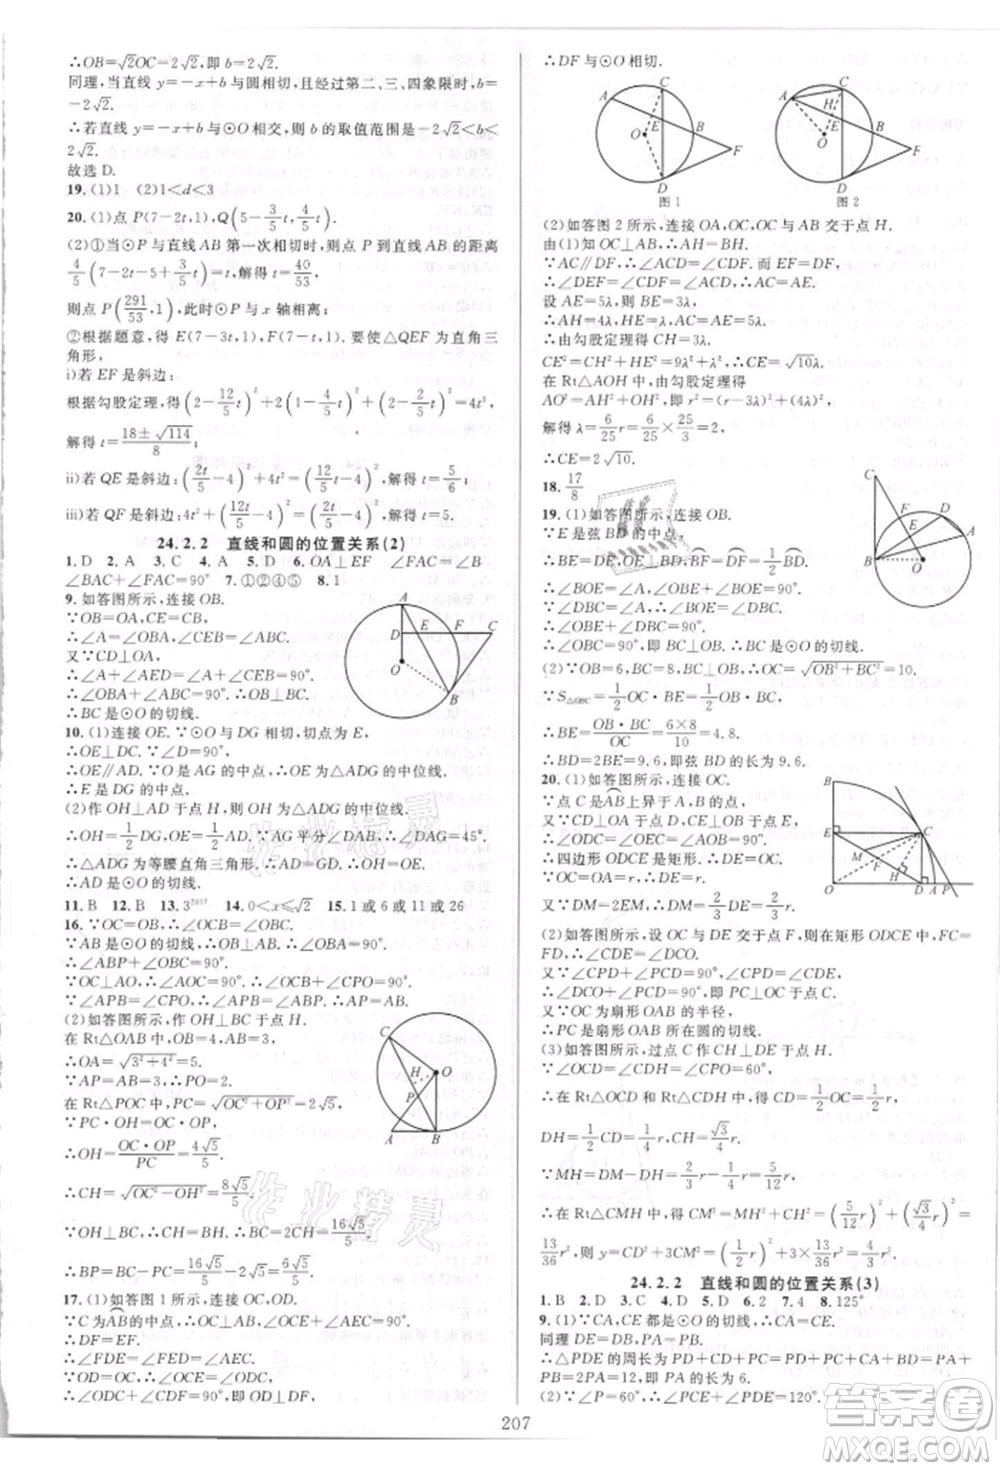 ∴OB=√2OC=2√2,即b=2√2.
同理,当直线y=-x+b与圆相切,且经过第二、三、四象限时,b=
-2√2.
∴若直线y=-x+b与⊙O相交,则b的取值范围是-2√2<b<
2√2.
故选D.
19. (1)1 (2)1<d<3
20. (1)点P(7-2t,1),Q(5-3/5t,4/5t).
(2)①当⊙P与直线AB第一次相切时,则点P到直线AB的距离
4/5(7-2t-5+3/5t)=t,解得t=40/53,
则点P(291/53,1),此时⊙P与x轴相离;
②根据题意,得E(7-3t,1),F(7-t,1).要使△QEF为直角三
角形,
i)若EF是斜边:
根据勾股定理,得(2-12/5t)²+2(4/5t-1)²+(2-2/5t)²=4t²,
解得t=(18±√114)/8;
ii)若QE是斜边:(2t/5-2)²+(4t/5-1)²+4t²=(12t/5-2)²+(4t/5-1)²,解得t=5/6;
iii)若QF是斜边:4t²+(12t/5-2)²+(4t/5-1)²=(2t/5-2)²+(4t/5-1)²,解得t=5.
24.2.2 直线和圆的位置关系(2)
1. D 2. A 3. C 4. A 5. C 6. OA⊥EF ∠FAC=∠B
∠BAC+∠FAC=90° 7. ①②④⑤ 8. 1
9. 如答图所示,连接OB.
∵OB=OA,CE=CB,
∴∠A=∠OBA,∠CEB=∠ABC.
又∵CD⊥OA,
∴∠A+∠AED=∠A+∠CEB=90°.
∴∠OBA+∠ABC=90°.∴OB⊥BC.
∴BC是⊙O的切线.
10. (1)连接OE.∵⊙O与DG相切,切点为E,
∴OE⊥DC.∵∠D=90°,∴OE∥AD.
又∵∠D=90°,∵O是AG的中点,∴OE为△ADG的中位线.
∴E是DG的中点.
(2)作OH⊥AD于点H,∴OH为△ADG的中位线.
∴OH=1/2DG=1/2AD.∵AG平分∠DAB,∴∠DAG=45°.
∴△ADG为等腰直角三角形.∴AD=GD.∴OH=OE.
∴AD是⊙O的切线.
11. B 12. B 13. 3²⁰¹⁷ 14. 0<x≤√2 15. 1或6或11或26
16. ∵OC=OB,∴∠OCB=∠OBC.
∵AB是⊙O的切线,∴OB⊥AB.
∴∠ABP+∠OBC=90°.
∵OC⊥AO,∴∠OCB+∠CPO=90°.
∴∠ABP=∠CPO,∵∠APB=∠CPO,∴∠APB=∠ABP.∴AP=AB.
(2)如答图所示,作OH⊥BC于点H.
在Rt△OAB中,∵OB=4,AB=3,
∴OA=√(3²+4²)=5.
∵AP=AB=3,∴PO=2.
在Rt△POC中,PC=√(OC²+OP²)=2√5.
∵PC·OH=OC·OP,
∴OH=OC·OP/PC=4√5/5.
∴CH=√(OC²-OH²)=8√5/5.
∵OH⊥BC,∴CH=BH.∴BC=2CH=16√5/5.
∴PB=BC-PC=16√5/5-2√5=6√5/5.
17. (1)如答图1所示,连接OC,OD.
∵C为AB的中点,∴OC⊥AB.
∴DF=EF.
∴∠FDE=∠FED=∠AEC.
∵OD=OC,∴∠ODC=∠OCD.
∴∠ODC+∠CDF=∠OCD+∠AEC=90°.∴OD⊥DF.
∴DF与⊙O相切.
A C O E B F D 图1
A C H E B F O D 图2
(2)如答图2所示,连接OA,OC,OC与AB交于点H.
由(1)知OC⊥AB.∴AH=BH.
∵AC∥DF,∴∠ACD=∠CDF.
又∵∠CDF=∠DEF=∠AEC,∴∠ACD=∠AEC.∴AC=AE.
设AE=5λ,
∴AH=4λ,HE=λ,CH=3λ.
∴由勾股定理得
CE²=CH²+HE²=9λ²+λ²,∴CE=√10λ.
在Rt△AOH中,由勾股定理得
AO²=AH²+OH²,即r²=(r-3λ)²+(4λ)².
解得λ=6/25r=6/25×25/3=2.
∴CE=2√10.
18. 17/8
19. (1)如答图所示,连接OB.
∵E是弦BD的中点,
∴BE=DE,OE⊥BD,BF=DF=1/2BD.
∴∠BOE=∠A,∠OBE+∠BOE=90°.
∵∠DBC=∠A,∴∠BOE=∠DBC.
∴∠OBE+∠DBC=90°.
∴∠OBC=90°,即BC⊥OB.∴BC是⊙O的切线.
(2)∵OB=6,BC=8,BC⊥OB,∴OC=√(OB²+BC²)=10.
∵S△OBC=1/2OC·BE=1/2OB·BC,
∴BE=OB·BC/OC=6×8/10=4.8.
∴BD=2BE=9.6,即弦BD的长为9.6.
20. (1)如答图所示,连接OC.
∵点C是AB上异于A,B的点,
又CD⊥OA,CE⊥OB,
∴∠CDO=∠OEC=∠AOB=90°.
∴四边形ODCE是矩形.∴DE=OC.
∵OC=OA=r,∴DE=r.
又∵DM=2EM,∴DM=2/3DE=2/3r.
(2)如答图所示,设OC与DE交于点F,则在矩形ODCE中,FC=
FD,∴∠CDE=∠DCO.
又∵∠CDE+∠CDP=90°,∠CPO+∠PCD=90°,∠CPO=∠CDE,
∴∠DCO+∠PCD=90°,即PC⊥OC于点C.
又∵OC为扇形OAB的半径,
∴PC是扇形OAB所在的圆的切线.
(3)如答图所示,过点C作CH⊥DE于点H.
∵∠OCD=∠CDE=∠CPO=60°,
∴在Rt△OCD和Rt△CDH中,得CD=1/2OC=1/2r,
DH=1/2CD=1/4r,CH=√3/2CD=√3/4r.
∵MH=DM-DH=2/3r-1/4r=5/12r,
∴在Rt△CMH中,CM²=MH²+CH²=(5/12r)²+(√3/4r)²=
13/36r²,则y=CD²+3CM²=(1/2r)²+3×13/36r²=4/3r².
24.2.2 直线和圆的位置关系(3)
1. B 2. D 3. C 4. D 5. D 6. 2 7. 4 8. 125°
9. (1)∵CA,CE都是⊙O的切线,∴CA=CE.
同理DE=DB,PA=PB.
∴△PDE的周长为PA+PB=2PA=12,
即PA的长为6.
(2)∵∠P=60°,∴∠PCE+∠PDE=120°.
207
作业精灵
作业精灵
答案圈
MXQE.COM